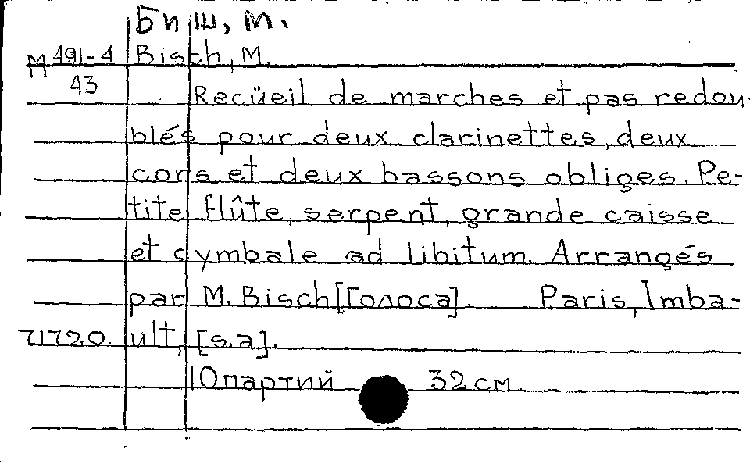 Биш, М.
М 491-4 Bisch, M.
43 Recüeil de marches et pas redou-
blés pour deux clarinettes, deux
cors et deux bassons obliges. Pe-
tite flûte, serpent, grande caisse
et cymbale ad libitum. Arrangés
par M. Bisch [Голоса]. Paris, Imba-
71720. ult, [s.a].
10 партий 32 см.